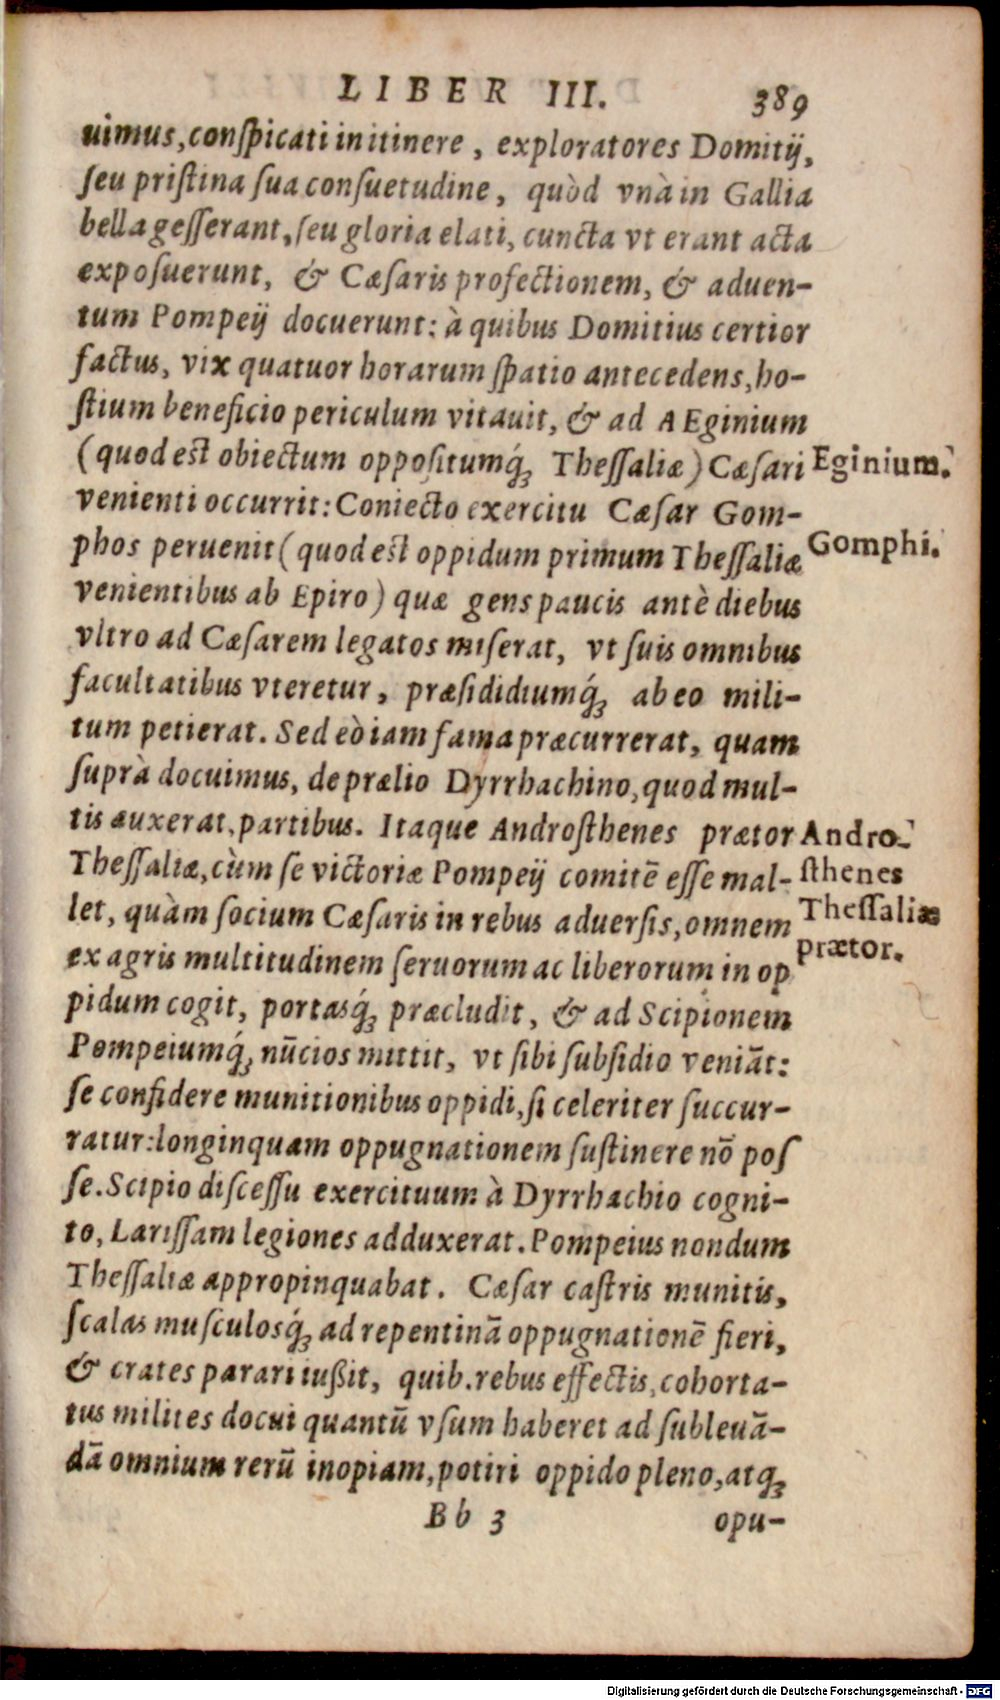 LIBER III. 389
uimus, conſpicati in itinere, exploratores Domitij,
ſeu priſtina ſua conſuetudine, quòd vnà in Gallia
bella geſſerant, ſeu gloria elati, cuncta vt erant acta
expoſuerunt, & Cæſaris profectionem, & aduen-
tum Pompeij docuerunt: à quibus Domitius certior
factus, vix quatuor horarum ſpatio antecedens, ho-
ſtium beneficio periculum vitauit, & ad AEginium
(quod eſt obiectum oppoſitumq́ꝫ Theſſaliæ) Cæſari
Eginium.
venienti occurrit: Coniecto exercitu Cæſar Gom-
phos peruenit (quod eſt oppidum primum Theſſaliæ
Gomphi.
venientibus ab Epiro) quæ gens paucis antè diebus
vltro ad Cæſarem legatos miſerat, vt ſuis omnibus
facultatibus vteretur, præſididiumq́ꝫ ab eo mili-
tum petierat. Sed eò iam fama præcurrerat, quam
ſuprà docuimus, de prælio Dyrrhachino, quod mul-
tis auxerat, partibus. Itaque Androſthenes prætor
Theſſaliæ, cùm ſe victoriæ Pompeij comitē eſſe mal-
let, quàm ſocium Cæſaris in rebus aduerſis, omnem
ex agris multitudinem ſeruorum ac liberorum in op
Andro-
ſthenes
Theſſaliæ
prætor.
pidum cogit, portasq́ꝫ præcludit, & ad Scipionem
Pompeiumq́ꝫ nūcios mittit, vt ſibi ſubſidio veniāt:
ſe confidere munitionibus oppidi, ſi celeriter ſuccur-
ratur: longinquam oppugnationem ſuſtinere nō poſ
ſe. Scipio diſceſſu exercituum à Dyrrhachio cogni-
to, Lariſſam legiones adduxerat. Pompeius nondum
Theſſaliæ appropinquabat. Cæſar caſtris munitis,
ſcalas muſculosq́ꝫ ad repentinā oppugnationē fieri,
& crates parari iußit, quib. rebus effectis, cohorta-
tus milites docui quantū vſum haberet ad ſubleuā-
dā omnium rerū inopiam, potiri oppido pleno, atqꝫ
Bb 3 opu-
Digitalisierung gefördert durch die Deutsche Forschungsgemeinschaft - DFG